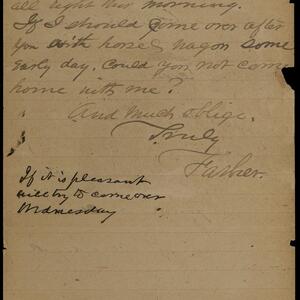 all right this morning.
If I should come over after
you with horse & wagon some
early day. Could you not come
home with me?
And much oblige.
Truly
Father.
If it is pleasant
will try to come over
Wednesday